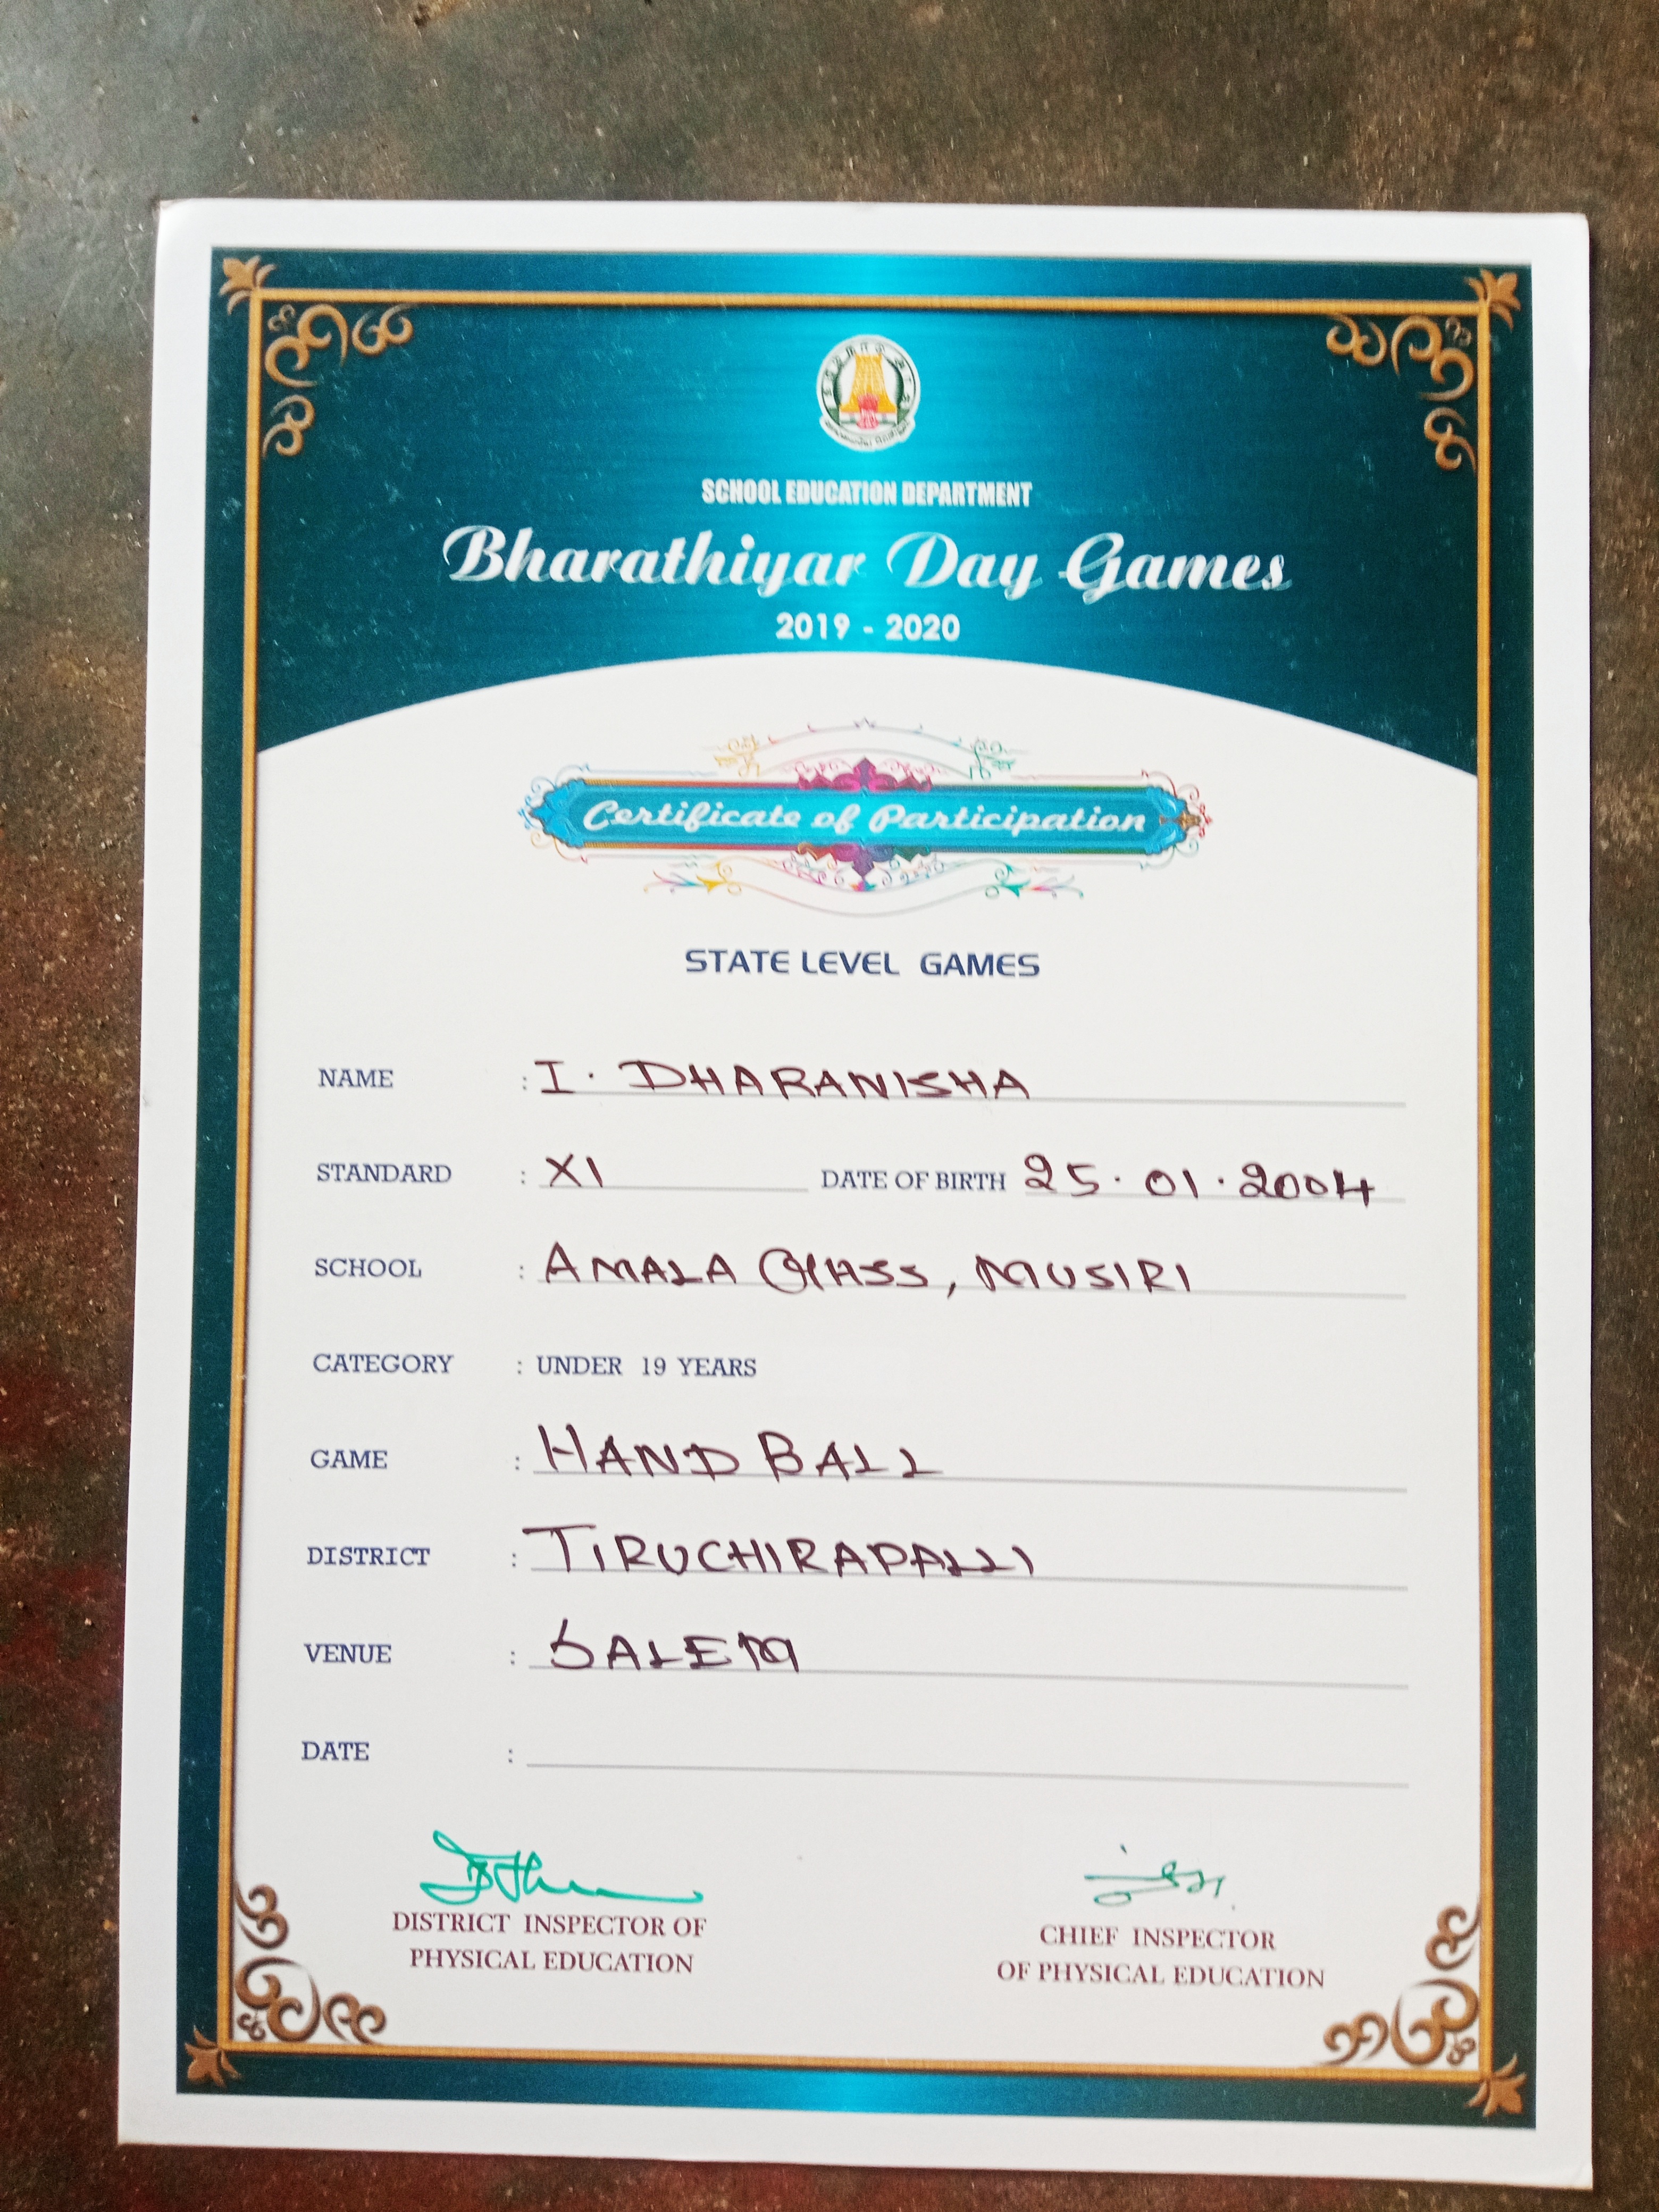 SCHOOL EDUCATION DEPARTMENT
Bharathiyar Day Games
2019 - 2020
Certificate of Participation
STATE LEVEL GAMES
NAME : I. DHARANISHA
STANDARD : XI DATE OF BIRTH 25.01.2004
SCHOOL : AMALA GHSS, MUSIRI
CATEGORY : UNDER 19 YEARS
GAME : HAND BALL
DISTRICT : TIRUCHIRAPALLI
VENUE : SALEM
DATE :
DISTRICT INSPECTOR OF
PHYSICAL EDUCATION
CHIEF INSPECTOR
OF PHYSICAL EDUCATION